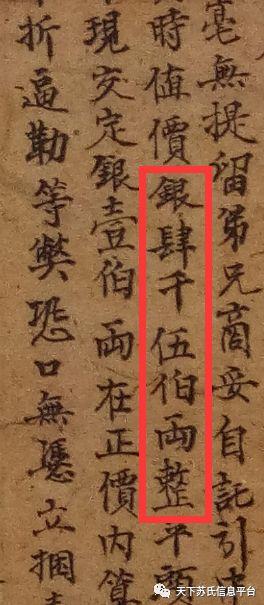 毫無提留弟兄商妥自託引
時值價銀肆千伍伯兩整平
現交定銀壹伯兩在正價內算
折逼勒等獘恐口無憑立捆
天下苏氏信息平台